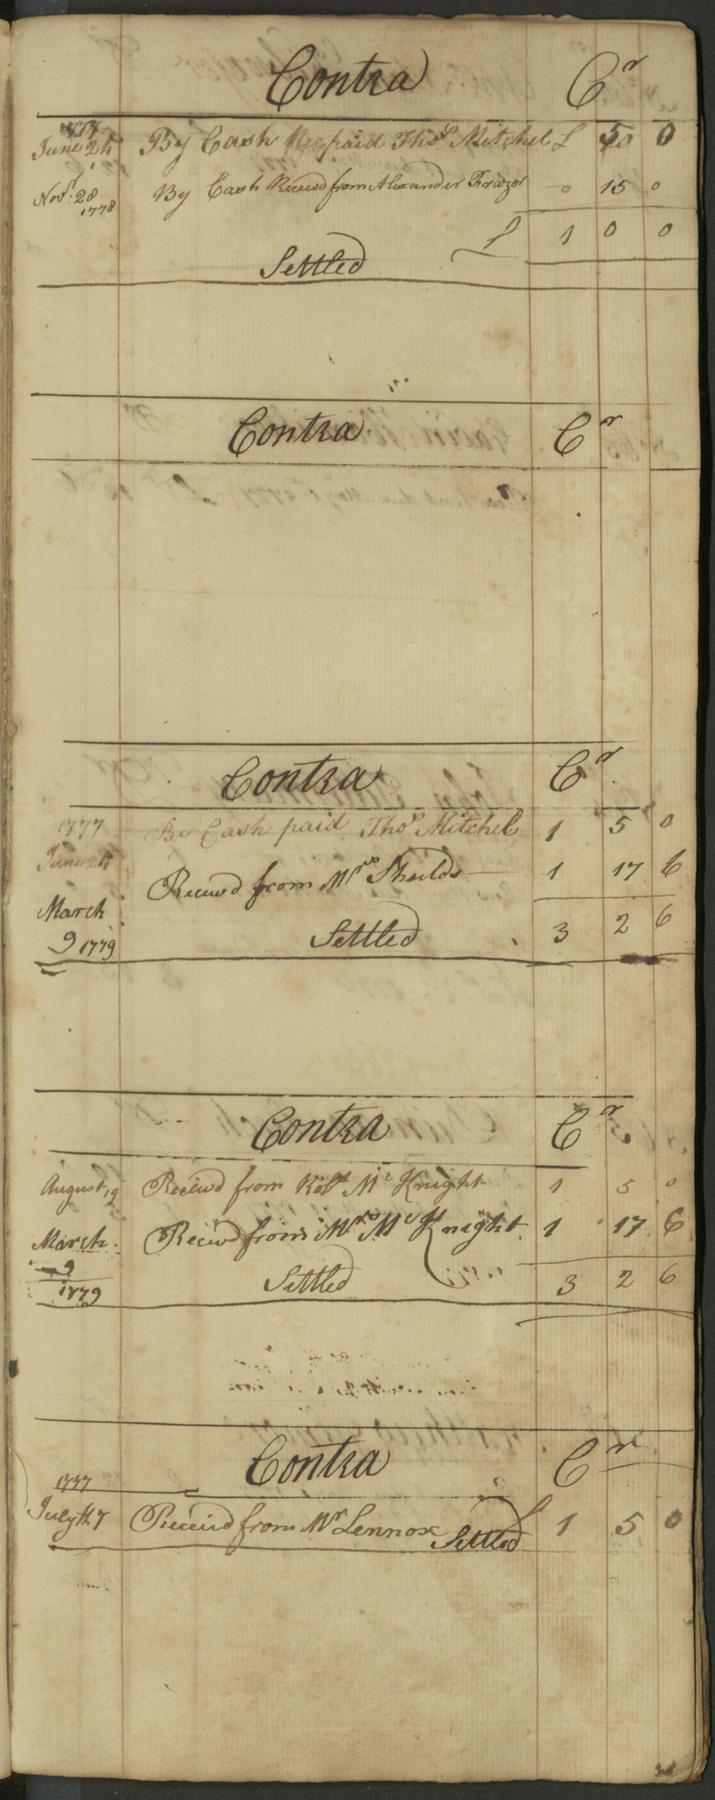 Contra Cr
1777
June 24 By Cash Repaid Thos Mitchel £ 5 0
Novr 28 By Cash Received from Alexander Frazor 0 15 0
1778
£ 1 0 0
Settled
Contra Cr
Contra Cr
1777 By Cash paid Thos Mitchel 1 5 0
June 24
Receivd from Mrs Sheilds 1 17 6
March
9 1779 Settled 3 2 6
Contra Cr
August 19 Receivd from Robt Mc Knight 1 5 0
March Receivd from Mrs Mc Knight 1 17 6
9
1779 Settled 3 2 6
Contra Cr
1777
July th 7 Receivd from Mr Lennox Settled £ 1 5 0